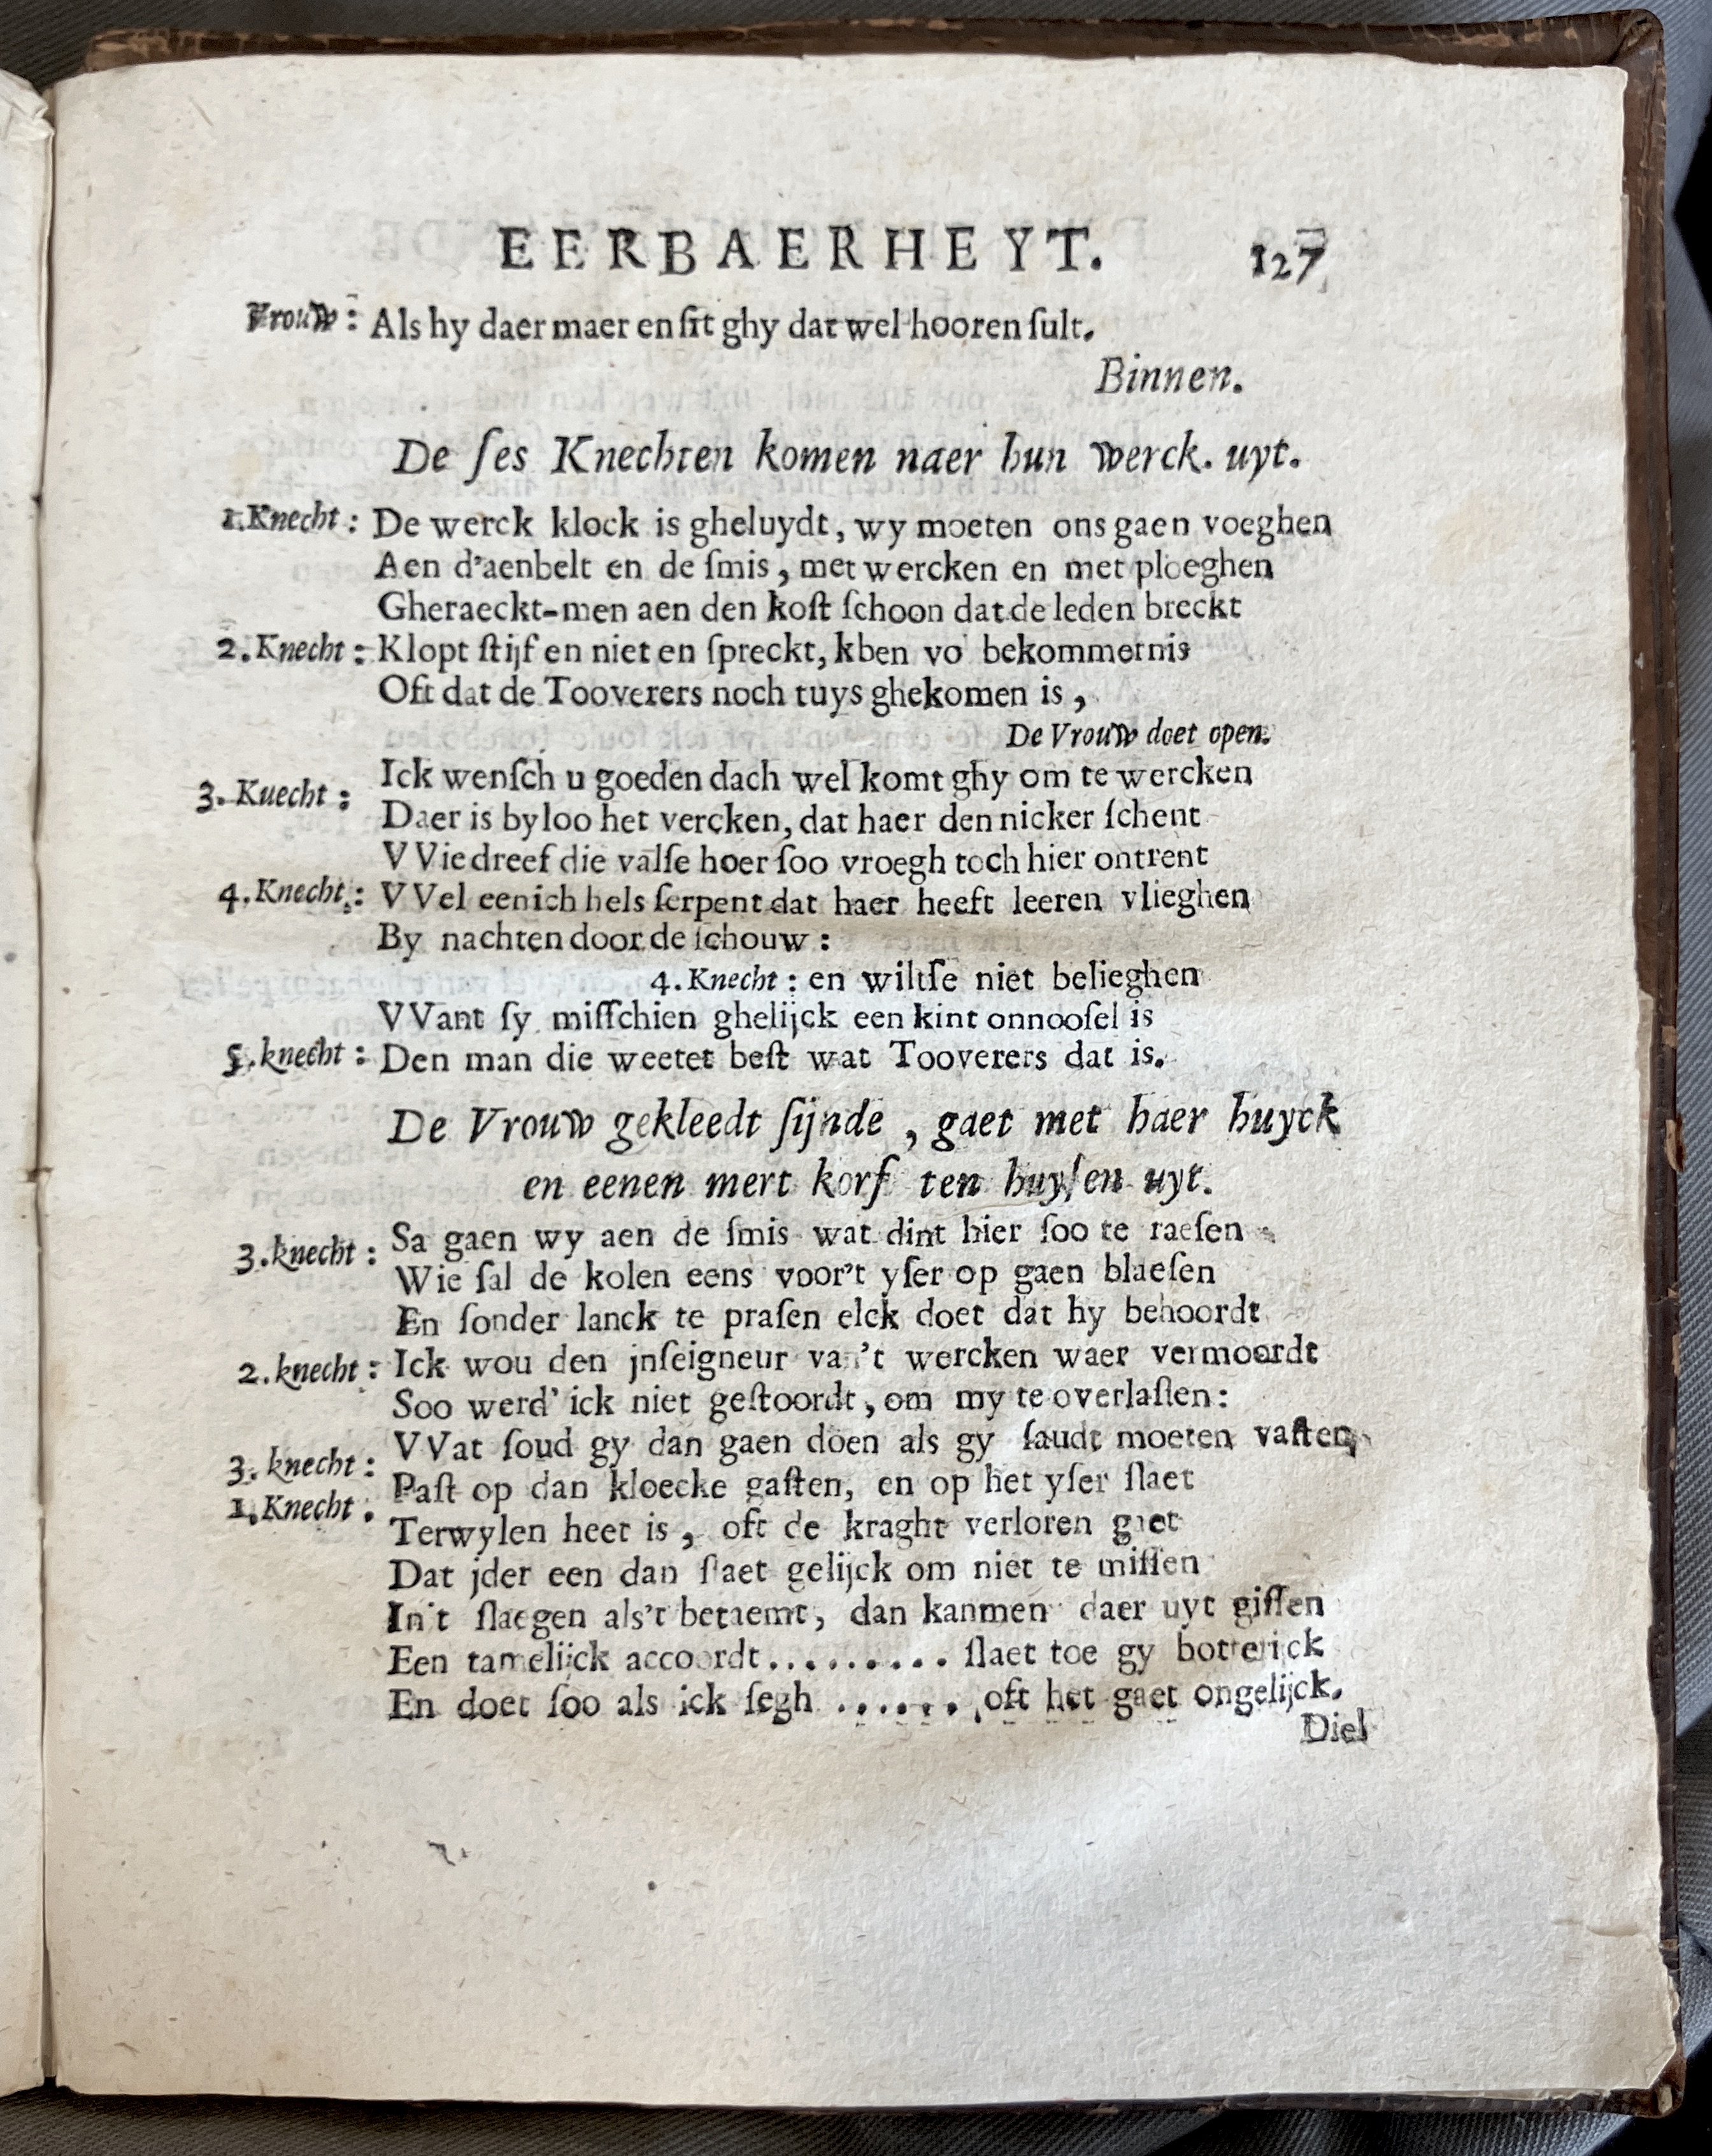 EERBAERHEYT. 127
Vrouw: Als hy daer maer en sit ghy dat wel hooren sult.
Binnen.
De ſes Knechten komen naer hun werck. uyt.
1.Knecht: De werck klock is gheluydt, wy moeten ons gaen voeghen
Aen d'aenbelt en de ſmis, met wercken en met ploeghen
Gheraeckt-men aen den koſt ſchoon dat de leden breckt
2.Knecht: Klopt ſtijf en niet en ſpreckt, kben vo bekommernis
Oft dat de Tooverers noch tuys ghekomen is,
De Vrouw doet open.
3. Kuecht: Ick wenſch u goeden dach wel komt ghy om te wercken
Daer is by loo het vercken, dat haer den nicker ſchent
VVie dreef die valſe hoer ſoo vroegh toch hier ontrent
4.Knecht: VVel eenich hels ſerpent dat haer heeft leeren vlieghen
By nachten door de ſchouw:
4.Knecht: en wiltſe niet belieghen
VVant ſy miſſchien ghelijck een kint onnooſel is
5.knecht: Den man die weetet beſt wat Tooverers dat is.
De Vrouw gekleedt ſijnde, gaet met haer huyck
en eenen mert korf ten huyſen uyt.
3.knecht: Sa gaen wy aen de ſmis wat dint hier ſoo te raeſen
Wie ſal de kolen eens voor't yſer op gaen blaeſen
En ſonder lanck te praſen elck doet dat hy behoordt
2.knecht: Ick wou den jnſeigneur van't wercken waer vermoordt
Soo werd' ick niet geſtoordt, om my te overlaſten:
3. knecht: VVat ſoud gy dan gaen doen als gy ſaudt moeten vaſten
1.Knecht. Paſt op dan kloecke gaſten, en op het yſer ſlaet
Terwylen heet is, oft de kraght verloren gaet
Dat jder een dan ſlaet gelijck om niet te miſſen
In't ſlaegen als't betaemt, dan kanmen daer uyt giſſen
Een tamelijck accoordt......... ſlaet toe gy botterick
En doet ſoo als ick ſegh ...... oft het gaet ongelijck.
Diel